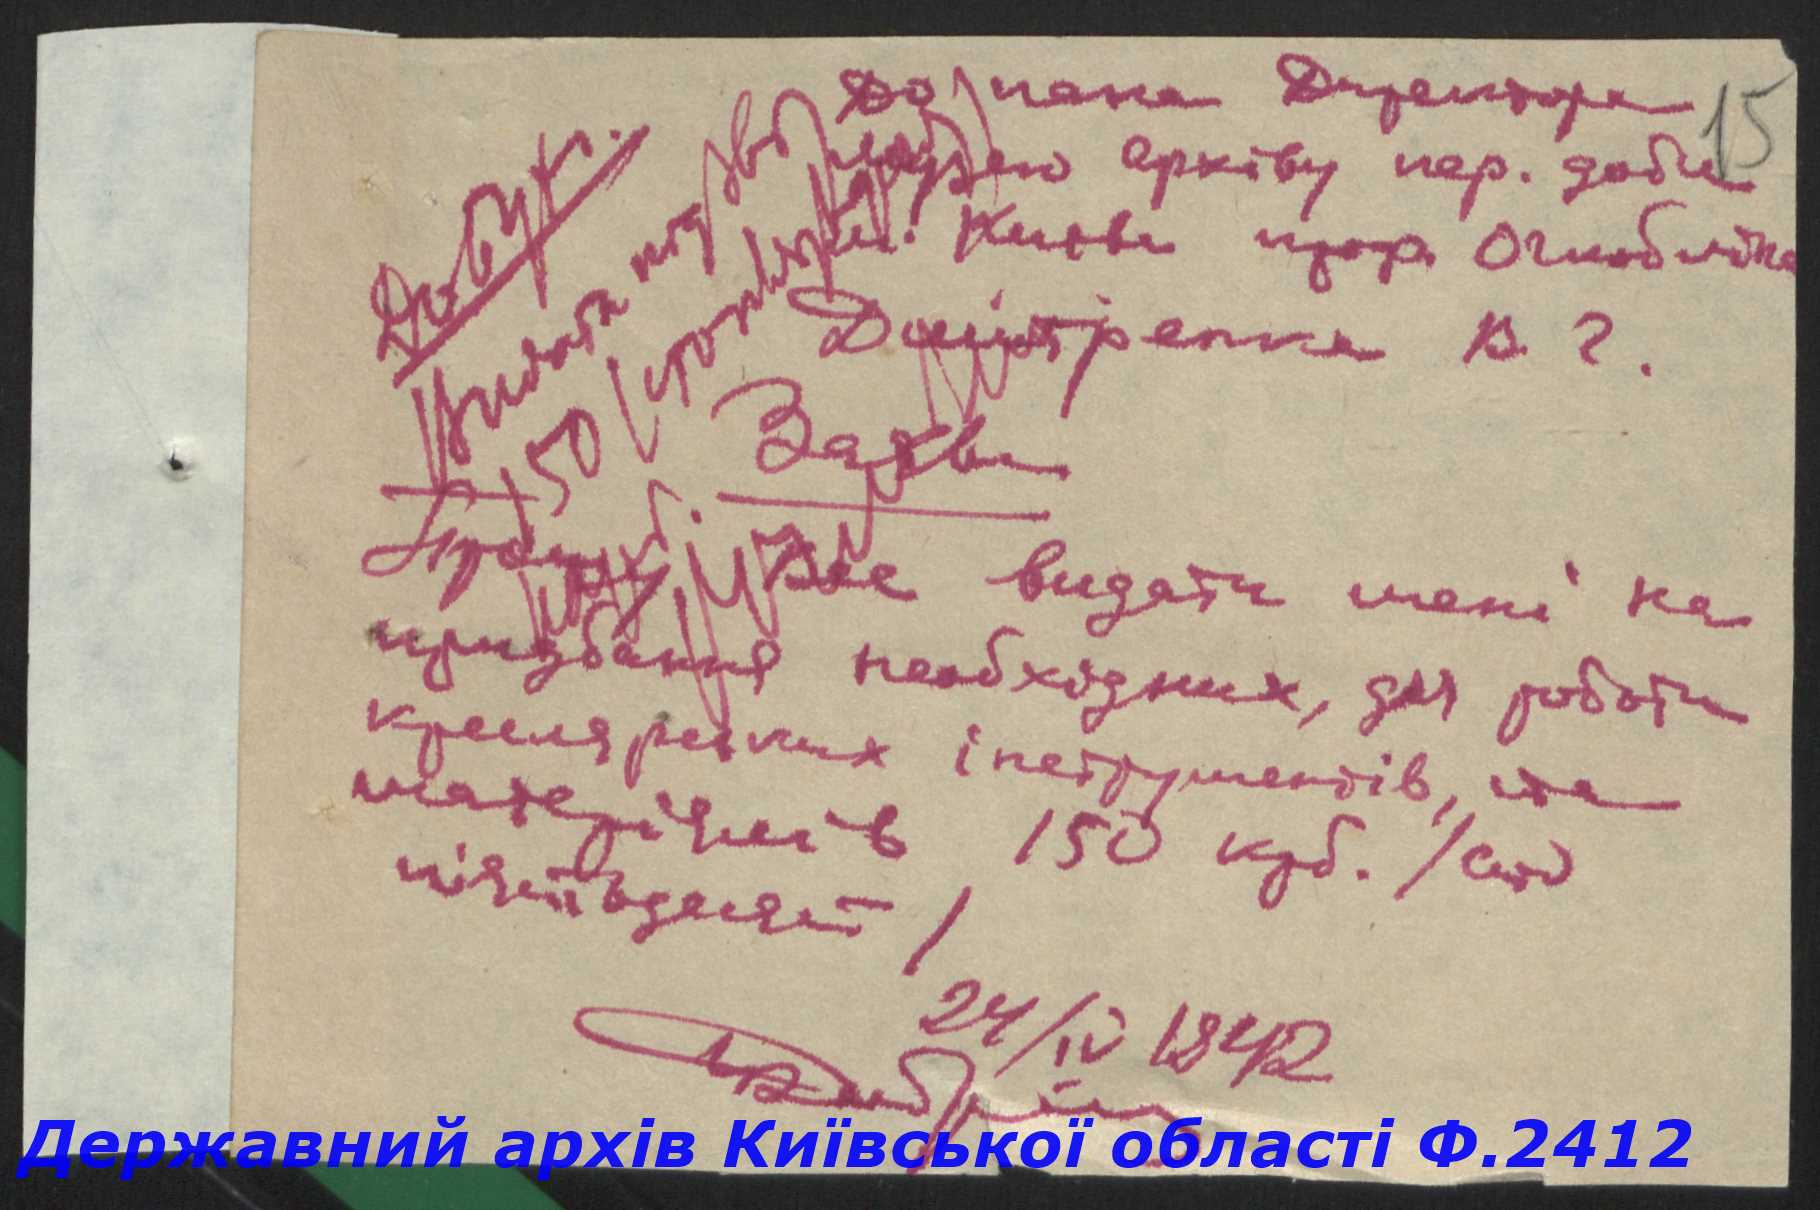 15
До пана Директора
музею архіву пер. доби
м. Києва проф. Оглобліна
Дмітренка В. Г.
Заява
Прошу Вас видати мені на
придбання необхідних, для роботи
креслярських інструментів, та
матеріялів 150 крб. /сто
пʼятьдесят/
24/IV 1942
Бухг.
Видати під звіт
150 /сто
Державний архів Київської області Ф.2412